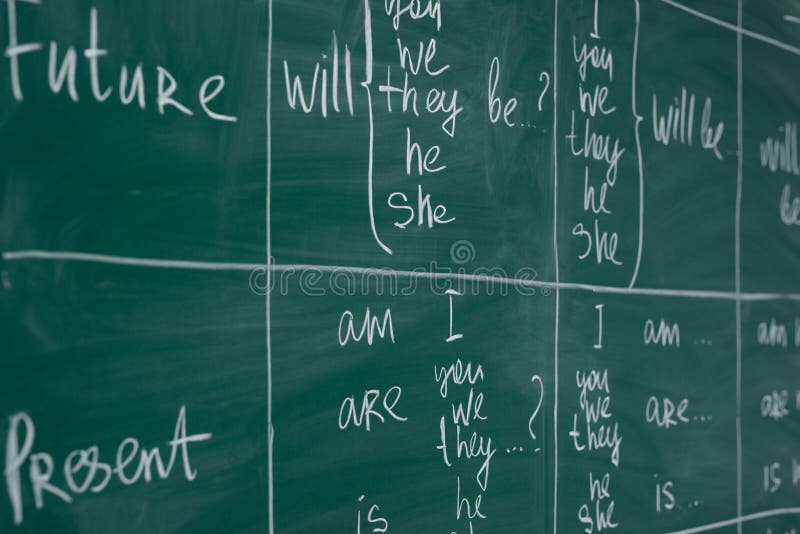 Future
will
you
we
they
he
she
be...?
I
you
we
they
he
she
will be...
will
be
Present
am I
are
you
we
they
...?
is
he
I am ...
you
we
they
are...
he
she
is ...
am
are
is
dreamstime